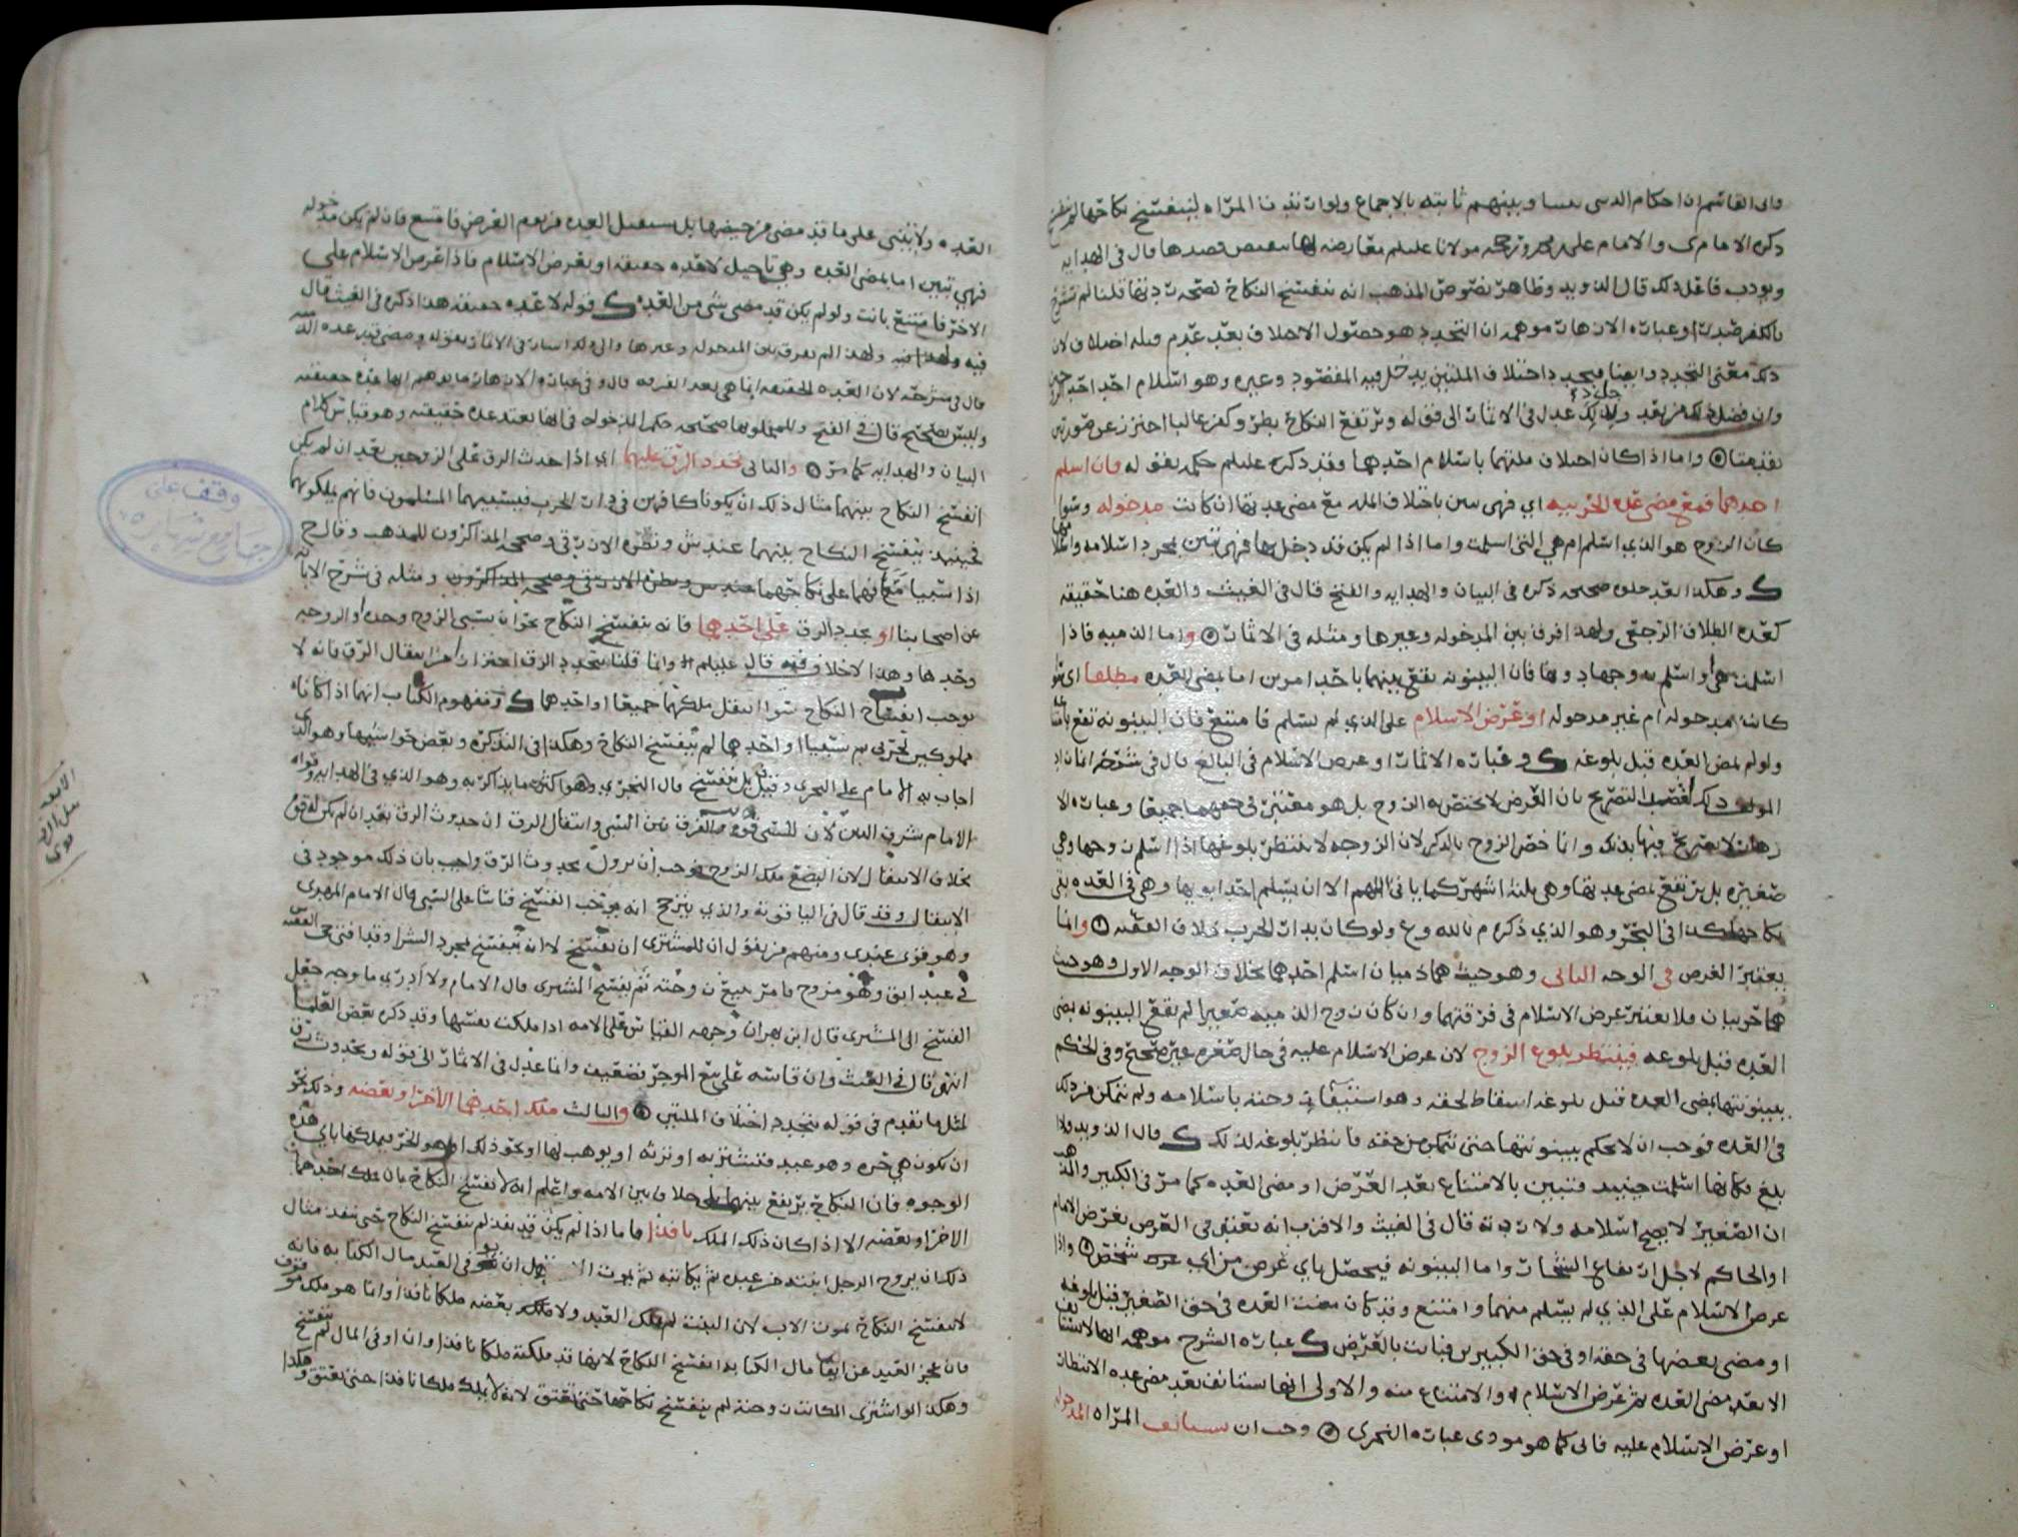 وابى القاسم ان احكام الدين بيننا وبينهم ثابته بالاجماع ولو ارتدت المراه لينفسخ نكاحها
ذكره الامام ى والامام على مولانا عليلم معارضه لها بنقيض قصدها قال فى الهدايه
قال الدويد وظاهر نصوص المذهب انه ينفسخ النكاح لصحة ردتها قلنا لم
او عبارة الازهار موهمه ان التجدد هو حصول الاختلاف بعد عدم قبله اختلاف لان
ذلك معنى التجدد وايضا فيجدد اختلاف الملتين يدخل فيه المقصود وغيره وهو اسلام احد
ولذلك عدل فى الاثمار الى قوله وترتفع النكاح بطرو كفر غالبا احترز عن صورتين
واما اذا كان اختلاف ملتهما باسلام احدهما وقد ذكره عليلم حكمه بقوله فان اسلم
احدهما فمع مضى عدة الحربيه اى فهى تبين باختلاف المله مع مضى عدتها ان كانت مدخوله وسوا
كان الزوج هو الذي اسلم ام هي التى اسلمت واما اذا لم يكن قد دخل بها فهى تبين بمجرد اسلامه
ك وهكذا بعد خلوه صحيحه ذكره فى البيان والهدايه والفتح قال فى الغيث والعده هنا حقيقه
كعدة الطلاق الرجعى ولهذا فرق بين المدخوله وغيرها ومثله فى الاثمار واما الذميه فاذا
اسلمت هى او اسلم زوجها دونها فان البينونه تقع بينهما باحد امرين اما بمضى العده مطلقا اى سوا
كانت مدخوله ام غير مدخوله او عرض الاسلام على الذي لم يسلم فامتنع فان البينونه تقع
ولو لم تمض العده قبل بلوغه ك وعبارة الاثمار او عرض الاسلام فى البالغ قال فى شرحه
المولف ذلك لقصد التصريح بان العرض لا يختص به الزوج بل هو معتبر فى حقهما جميعا وعبارة الا
زهار لا تصريح فيها بذلك وانما خص الزوج بالذكر لان الزوجه لا ينتظر بلوغها اذا اسلم زوجها وهي
صغيره بل يرتفع بمضى عدتها وهى ثلثة اشهر كما ياتى اللهم الا ان يسلم احد ابويها وهى فى العده بقى
نكاحها هكذا فى البحر وهو الذي ذكره م بالله وع ولو كان بدار الحرب بخلاف الفقيه وانما
يعتبر العرض فى الوجه الثانى وهو حيث هما ذميان اسلم احدهما بخلاف الوجه الاول وهو حيث
هما حربيان فلا يعتبر عرض الاسلام فى فرقتهما وان كان زوج الذميه صغيرا لم تقع البينونه بمضى
العده قبل بلوغه فينتظر بلوغ الزوج لان عرض الاسلام عليه فى حال صغره غير صحيح وفى الحكم
ببينونتها بمضى العده قبل بلوغه اسقاط لحقه وهو استبقا زوجته باسلامه ولم يتمكن من ذلك
فى العده فوجب ان لا يحكم ببينونتها حتى يتمكن من حقه فانتظر بلوغه لذلك ك قال الدويد فاذا
بلغ فكانها اسلمت حينيذ فتبين بالامتناع بعد العرض او مضى العده كما مر فى الكبير والمذهب
ان الصغير لا يصح اسلامه ولا ردته قال فى الغيث والاقرب انه يعتبر فى العرض بعرض الامام
او الحاكم لاجل ارتفاع الشجار واما البينونه فيحصل باي عرض من اي شخص واذا
عرض الاسلام على الذي لم يسلم منهما وامتنع وقد كان مضت العده فى حق الصغير قبل بلوغه
او مضى بعضها فى حقه او فى حق الكبيرين فبانت بالعرض ك عبارة الشرح موهمه انها لا تستانف
الا بعد مضى العده ثم عرض الاسلام والامتناع منه والاولى انها ستانف بعد مضى عدة الانتظار
او عرض الاسلام عليه فابى كما هو مودى عبارة النجرى وجب ان تستانف المراه المدخوله
العده ولا يبنى على ما قد مضى من حيضها بل يستقبل العده من يوم العرض فامتنع فان لم يكن مدخوله
فهي تبين اما بمضى العده وهي تاجيل لا عده حقيقه او بعرض الاسلام فاذا عرض الاسلام على
الاخر فامتنع بانت ولو لم يكن قد مضى شى من العده ك قوله لا عده حقيقه هذا ذكره فى الغيث قال
فيه ولهذا لم يفرق بين المدخوله وغيرها والى ذلك اشار فى الاثمار بقوله ومضى قدر عدة
قال فى شرحه لان العده الحقيقه انما هى بعد الفرقه قال وفى عبارة الازهار ما يوهم انها عده حقيقيه
وليس بصحيح قال فى الفتح وللمخلو بها صحيحه حكم المدخوله فى انها يعتد عده حقيقيه وهو قياس كلام
البيان والهدايه كما مر والثانى تجدد الرق عليهما اي اذا حدث الرق على الزوجين بعد ان لم يكن
انفسخ النكاح بينهما مثال ذلك ان يكونا كافرين فى دار الحرب فيسبيهما المسلمون فانهم يملكونهما
فحينيذ ينفسخ النكاح بينهما عند ش ونظره الازرقى وصححه المذاكرون للمذهب وقال ح
اذا سبيا معا فهما على نكاحهما ومثله فى شرح الابانه
عن اصحابنا او تجدد الرق على احدهما فانه ينفسخ النكاح نحو ان يسبى الزوج وحده او الزوجه
وحدها وهذا لا خلاف فيه قال عليلم وانما قلنا بتجدد الرق احترازا من انتقال الرق فانه لا
يوجب انفساخ النكاح سوا انتقل ملكهما جميعا او احدهما ك ومفهوم الكتاب انهما اذا كانا
مملوكين لحربى ثم سبيا او احدهما لم ينفسخ النكاح وهكذا فى التذكره وبعض حواشيها وهو الذى
اجاب به الامام على النجرى وقيل بل ينفسخ قال النجري وهو اكثر ما يذاكر به وهو الذي فى الهدايه وقواه
الامام شرف الدين لان للسبى قوه والفرق بين السبي وانتقال الرق ان حدوث الرق بعد ان لم يكن له قوه
بخلاف الانتقال لان البضع ملك الزوج فوجب ان يزول بحدوث الرق واجيب بان ذلك موجود فى
الانتقال وقد قال فى الياقوته والذي يترجح انه يوجب الفسخ قياسا على السبى قال الامام المهدى
وهو قوى عندى ومنهم من يقول ان للمشترى ان يفسخ لا انه ينفسخ بمجرد الشرا وقد افتى
فى عبد ابق وهو مزوج فامر ببيع زوجته ثم يفسخ المشترى قال الامام ولا ادري ما وجه جعل
الفسخ الى المشترى قال ابن بهران وجهه القياس على الامه اذا ملكت نفسها وقد ذكره بعض العلما
انتهى قال فى الغيث وان قاسه على بيع الموجر فضعيف وانما عدل فى الاثمار الى قوله وبحدوث رق
لمثل ما تقدم فى قوله بتجدد اختلاف الملتين والثالث ملك احدهما الاخر او بعضه وذلك نحو
ان تكون هي حره وهو عبد فتشتريه او ترثه او يوهب لها او نحو ذلك او هو الحر فيملكها باي هذه
الوجوه فان النكاح يرتفع بينهما على خلاف بين الامه واعلم انه لا ينفسخ النكاح بان ملك احدهما
الاخر او بعضه الا اذا كان ذلك الملك نافذا فاما اذا لم يكن قد نفذ لم ينفسخ النكاح حتى ينفذ مثال
ذلك ان يزوج الرجل ابنته من عبده ثم يكاتبه ثم يموت الاب قبل ان يوفى العبد مال الكتابه فانه
لا ينفسخ النكاح بموت الاب لان البنت لم تملك العبد ولا ملكت بعضه ملكا نافذا وانما هو ملك موقوف
فان عجز العبد عن ايفا مال الكتابه انفسخ النكاح لانها قد ملكته ملكا نافذا وان اوفى المال لم ينفسخ
وهكذا لو اشترى المكاتب زوجته لم ينفسخ نكاحهما حتى تعتق لانه لا يملك ملكا نافذا حتى يعتق وهكذا
وقف على
جامع شهاره